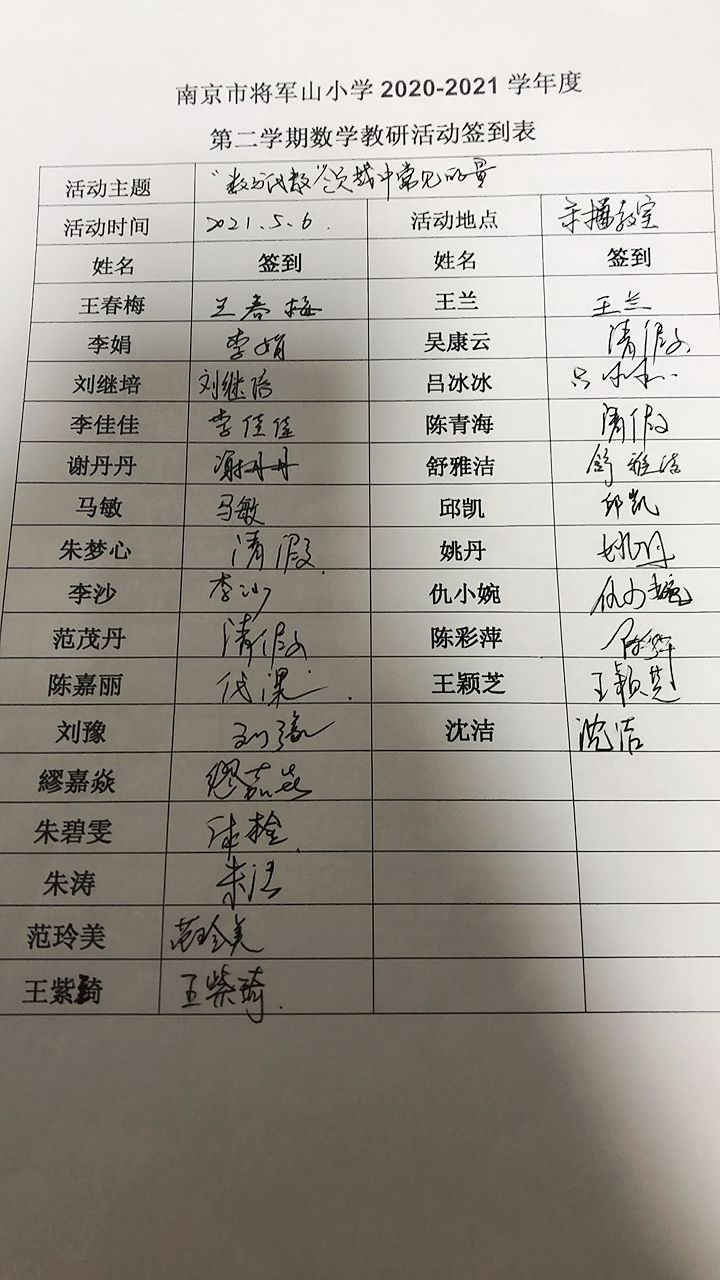 南京市将军山小学 2020-2021 学年度
第二学期数学教研活动签到表
活动主题 "数与代数"领域中常见的量
活动时间 2021.5.6. 活动地点 录播教室
姓名 签到 姓名 签到
王春梅 王春梅 王兰 王兰
李娟 李娟 吴康云 请假
刘继培 刘继培 吕冰冰 吕冰冰
李佳佳 李佳佳 陈青海 请假
谢丹丹 谢丹丹 舒雅洁 舒雅洁
马敏 马敏 邱凯 邱凯
朱梦心 请假 姚丹 姚丹
李沙 李沙 仇小婉 仇小婉
范茂丹 请假 陈彩萍
陈嘉丽 代课 王颖芝 王颖芝
刘豫 刘豫 沈洁 沈洁
繆嘉焱 繆嘉焱
朱碧雯 体检
朱涛 朱涛
范玲美 范玲美
王紫琦 王紫琦